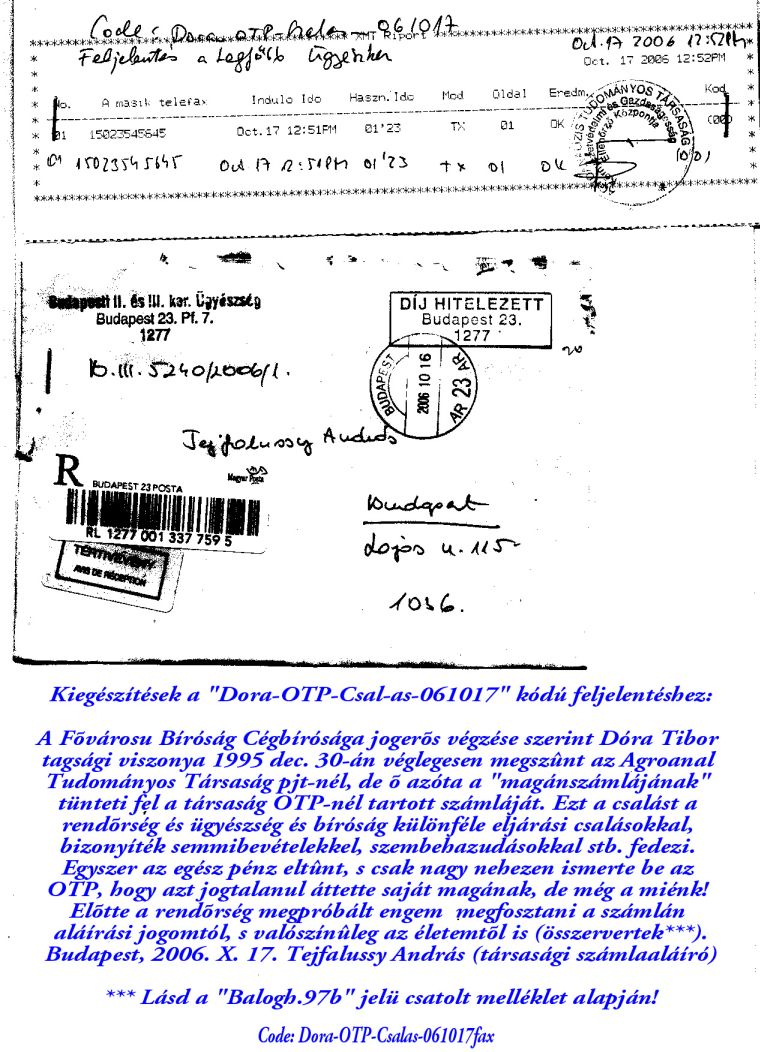 Code: Dora-OTP-Csalas-061017
XMT Riport
Feljelentés a Legfőbb Ügyészhez
Oct. 17 2006 12:52PM
Oct. 17 2006 12:52PM
No. A masik telefax Indulo Ido Haszn.Ido Mod Oldal Eredm. Kod
01 15023545645 Oct.17 12:51PM 01'23 TX 01 OK
01 15023545645 Oct 17 12:51PM 01'23 TX 01 OK
TUDOMÁNYOS TÁRSASÁG
Budapesti II. és III. ker. Ügyészség
Budapest 23. Pf. 7.
1277
DÍJ HITELEZETT
Budapest 23.
1277
B.III. 5240/2006/1.
BUDAPEST
2006 10 16
AR 23 AR
Tejfalussy András
R
BUDAPEST 23 POSTA
Magyar Posta
RL 1277 001 337 759 5
TÉRTIVEVÉNY
AVIS DE RÉCEPTION
Budapest
Lajos u. 115
1036.
Kiegészítések a "Dora-OTP-Csal-as-061017" kódú feljelentéshez:
A Fõvárosu Bíróság Cégbírósága jogerõs végzése szerint Dóra Tibor
tagsági viszonya 1995 dec. 30-án véglegesen megszûnt az Agroanal
Tudományos Társaság pjt-nél, de õ azóta a "magánszámlájának"
tünteti fel a társaság OTP-nél tartott számláját. Ezt a csalást a
rendõrség és ügyészség és bíróság különféle eljárási csalásokkal,
bizonyíték semmibevételekkel, szembehazudásokkal stb. fedezi.
Egyszer az egész pénz eltûnt, s csak nagy nehezen ismerte be az
OTP, hogy azt jogtalanul áttette saját magának, de még a miénk!
Elõtte a rendõrség megpróbált engem megfosztani a számlán
aláírási jogomtól, s valószínûleg az életemtõl is (összevertek***).
Budapest, 2006. X. 17. Tejfalussy András (társasági számlaaláíró)
*** Lásd a "Balogh.97b" jelü csatolt melléklet alapján!
Code: Dora-OTP-Csalas-061017fax